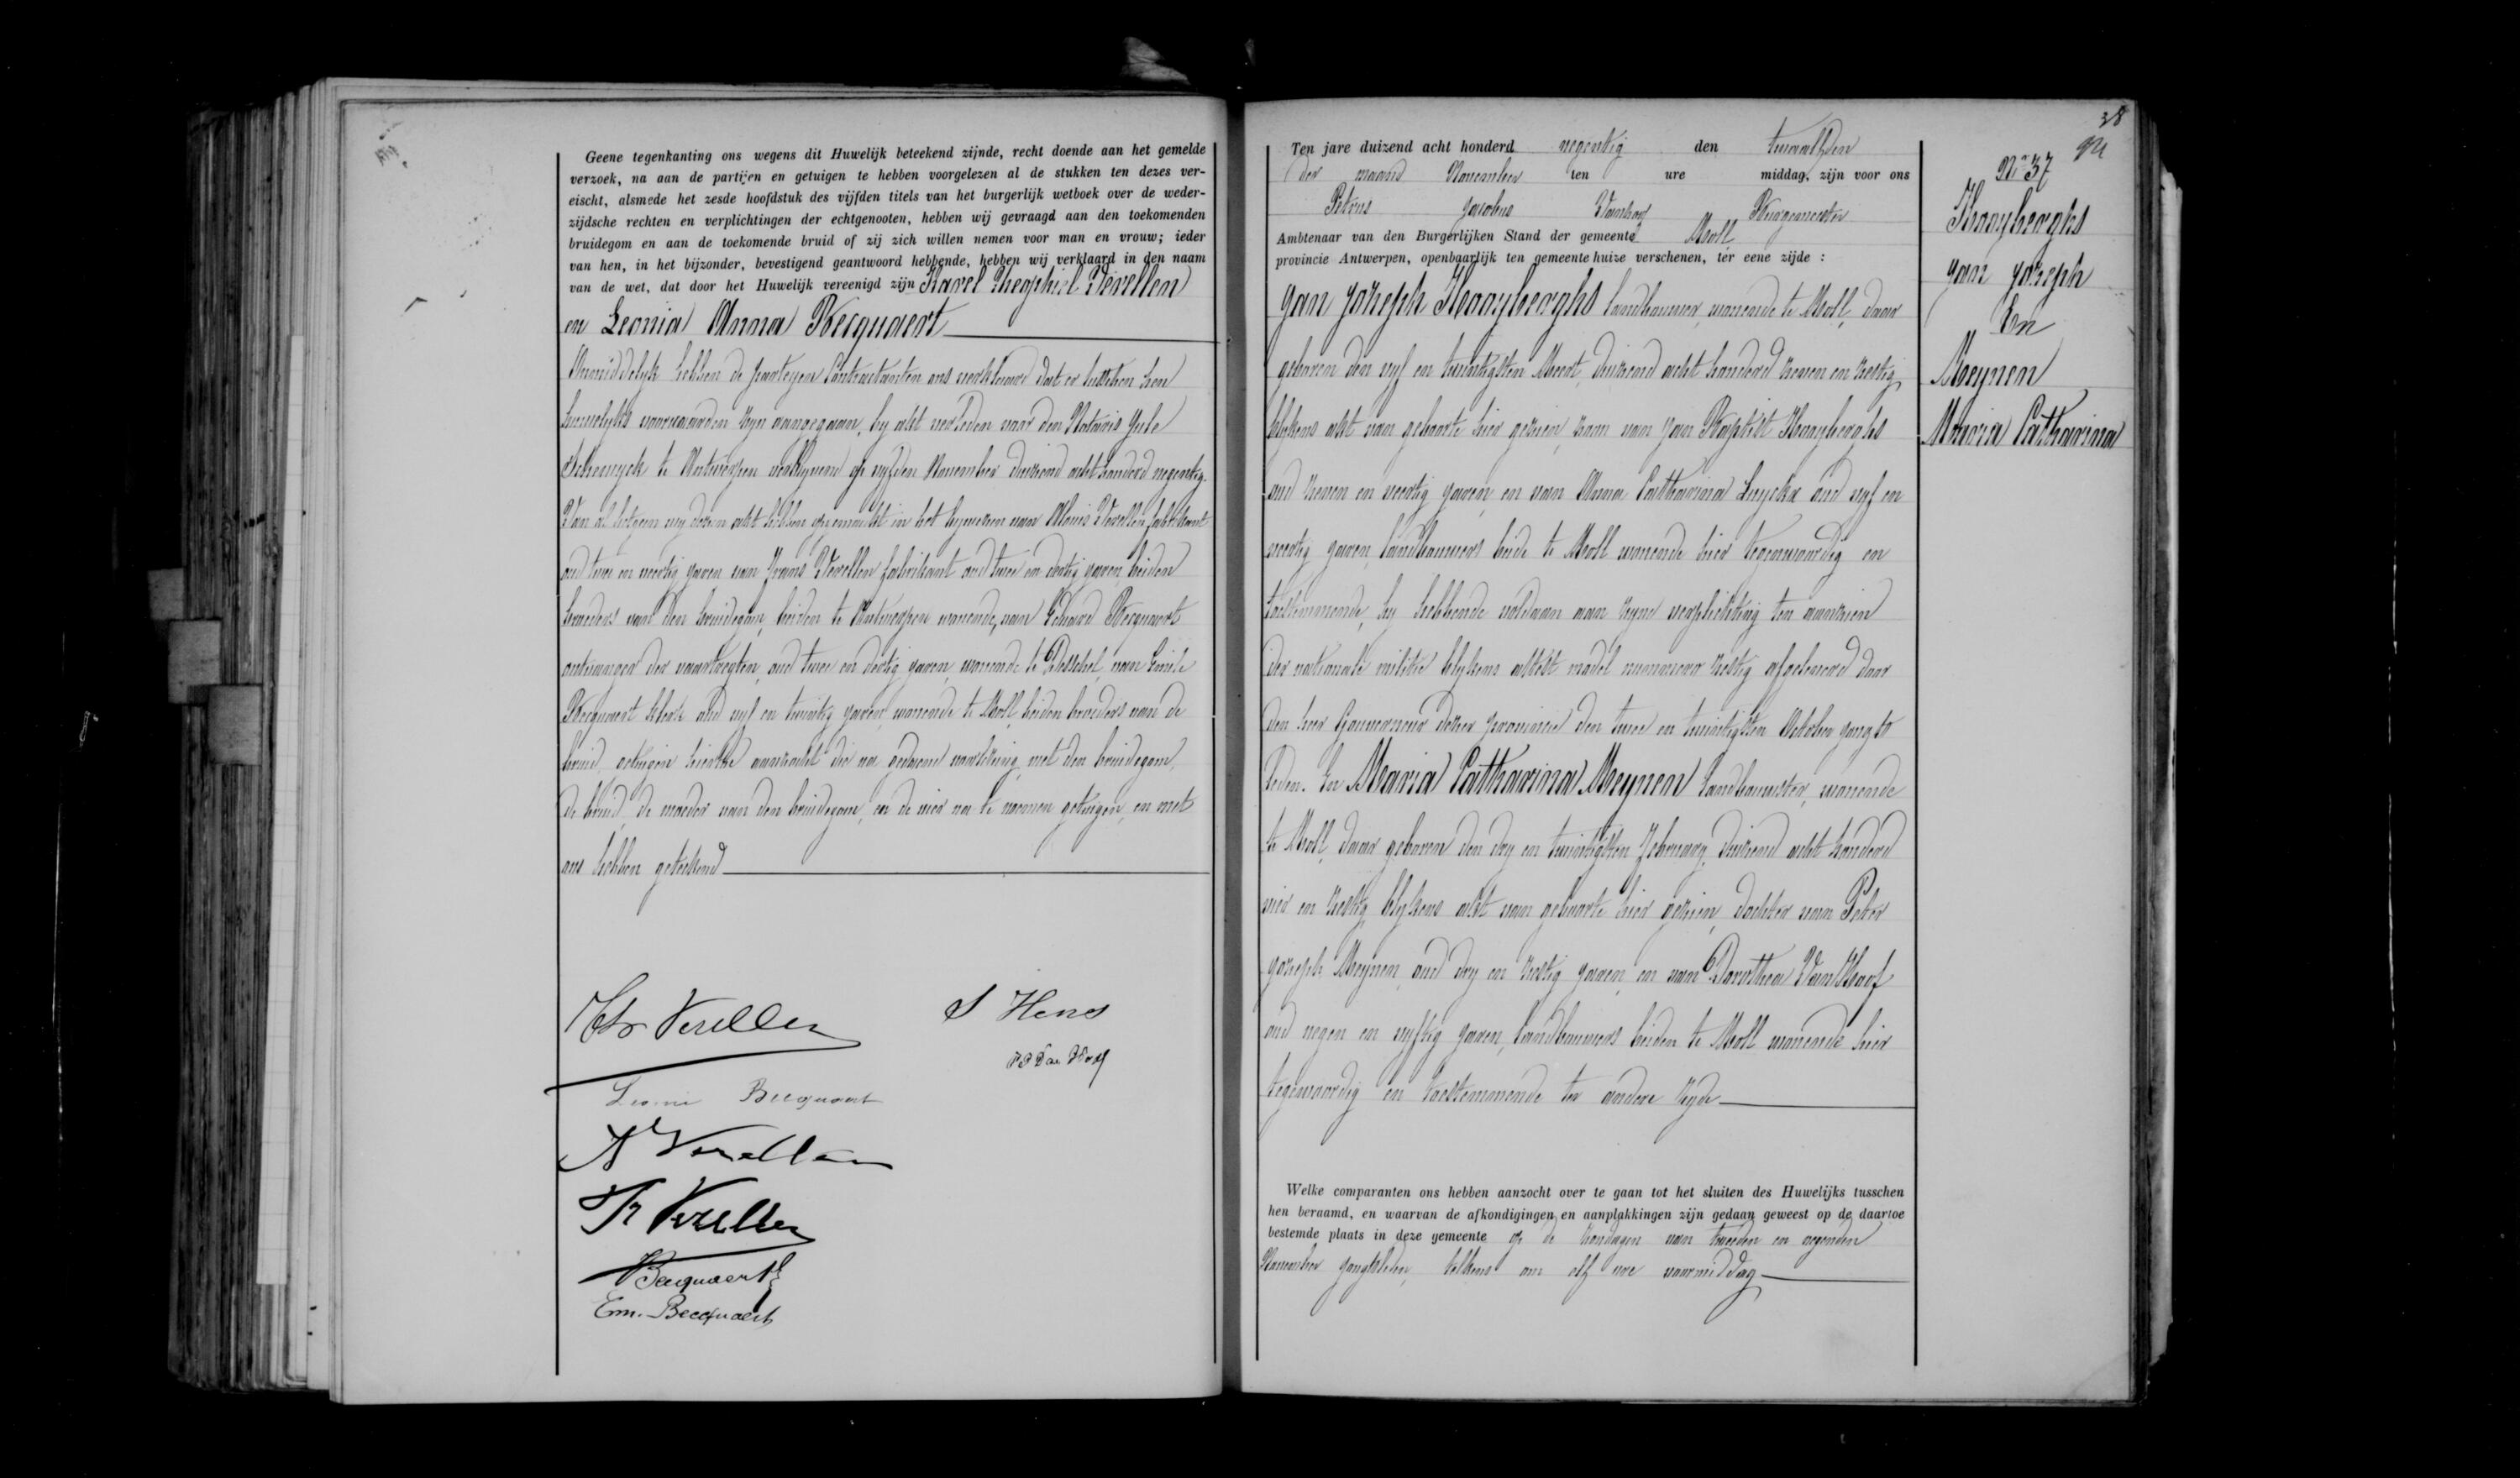 Geene tegenkanting ons wegens dit Huwelijk beteekend zijnde, recht doende aan het gemelde
verzoek, na aan de partijen en getuigen te hebben voorgelezen al de stukken ten dezes ver-
eischt, alsmede het zesde hoofdstuk des vijfden titels van het burgerlijk wetboek over de weder-
zijdsche rechten en verplichtingen der echtgenooten, hebben wij gevraagd aan den toekomenden
bruidegom en aan de toekomende bruid of zij zich willen nemen voor man en vrouw; ieder
van hen, in het bijzonder, bevestigend geantwoord hebbende, hebben wij verklaard in den naam
van de wet, dat door het Huwelijk vereenigd zijn Karel Theophiel Verellen
en Leonia Anna Becquaert
Onmiddelyk hebben de parteyen Contractanten ons verklaard dat er tusschen hen
huwelyks voorwaarden zyn aangegaan, by akt verleden voor den Notaris Jule
te Antwerpen op vyfden November duizend acht honderd negentig.
Van al hetgeen wy dezen akt hebben opgemaakt in het bywezen van Alouis Verellen fabrikant
oud twee en veertig jaren van Frans Verellen fabrikant oud twee en dertig jaren beiden
broeders van den bruidegom, beiden te Antwerpen wonende, van Eduard Becquaert
ontvanger der vaartregten, oud twee en dertig jaren, wonende te Desschel, van Emile
Becquaert klerk oud vyf en twintig jaren wonende te Moll, beiden broeders van de
bruid, getuigen hiertoe aanzocht die na gedaene voorlezing, met den bruidegom,
de bruid, de moeder van den bruidegom, en de vier na te noemen getuigen, en met
ons hebben geteekend
Th Verellen
S Hens
P J Van Hoof
Leonie Becquaert
A Verellen
Fr Verellen
Becquaert E
Em. Becquaert
38
Ten jare duizend acht honderd negentig den twaalfden
der maand November ten ure middag, zijn voor ons
Petrus Jacobus Vanhoof Burgemeester
Ambtenaar van den Burgerlijken Stand der gemeente Moll
provincie Antwerpen, openbaarlijk ten gemeentehuize verschenen, ter eene zijde :
Jan Jozeph Knaepberghs landbouwer, wonende te Moll, daar
geboren den vyf en twintigsten Meert, duizend acht honderd zeven en zestig
blykens akt van geboorte hier gezien, zoon van Jan Baptist
oud zeven en veertig jaren, en van Anna Catharina Luyckx oud vyf en
veertig jaren, landbouwers beide te Moll wonende hier tegenwoordig en
toestemmende, hy hebbende voldaan aan zyne verplichting ten aanzien
der nationale militie blykens attest model nummer zestig afgeleverd door
den heer Gouverneur dezer provincie den twee en twintigsten October jongst
leden. En Maria Catharina Meynen landbouwster, wonende
te Moll, daar geboren den dry en twintigsten February duizend acht honderd
vier en zestig blykens akt van geboorte hier gezien, dochter van Peter
Jozeph Meynen, oud dry en zestig jaren, en van Dorothea Van Hoof
oud negen en vyftig jaren, landbouwers beiden te Moll wonende hier
tegenwoordig en toestemmende ter andere zyde
Welke comparanten ons hebben aanzocht over te gaan tot het sluiten des Huwelijks tusschen
hen beraamd, en waarvan de afkondigingen en aanplakkingen zijn gedaan geweest op de daartoe
bestemde plaats in deze gemeente op de zondagen van tweeden en negenden
November jongstleden, telkens om elf ure voormiddag
No 37
Jan Jozeph
En
Meynen
Maria Catharina